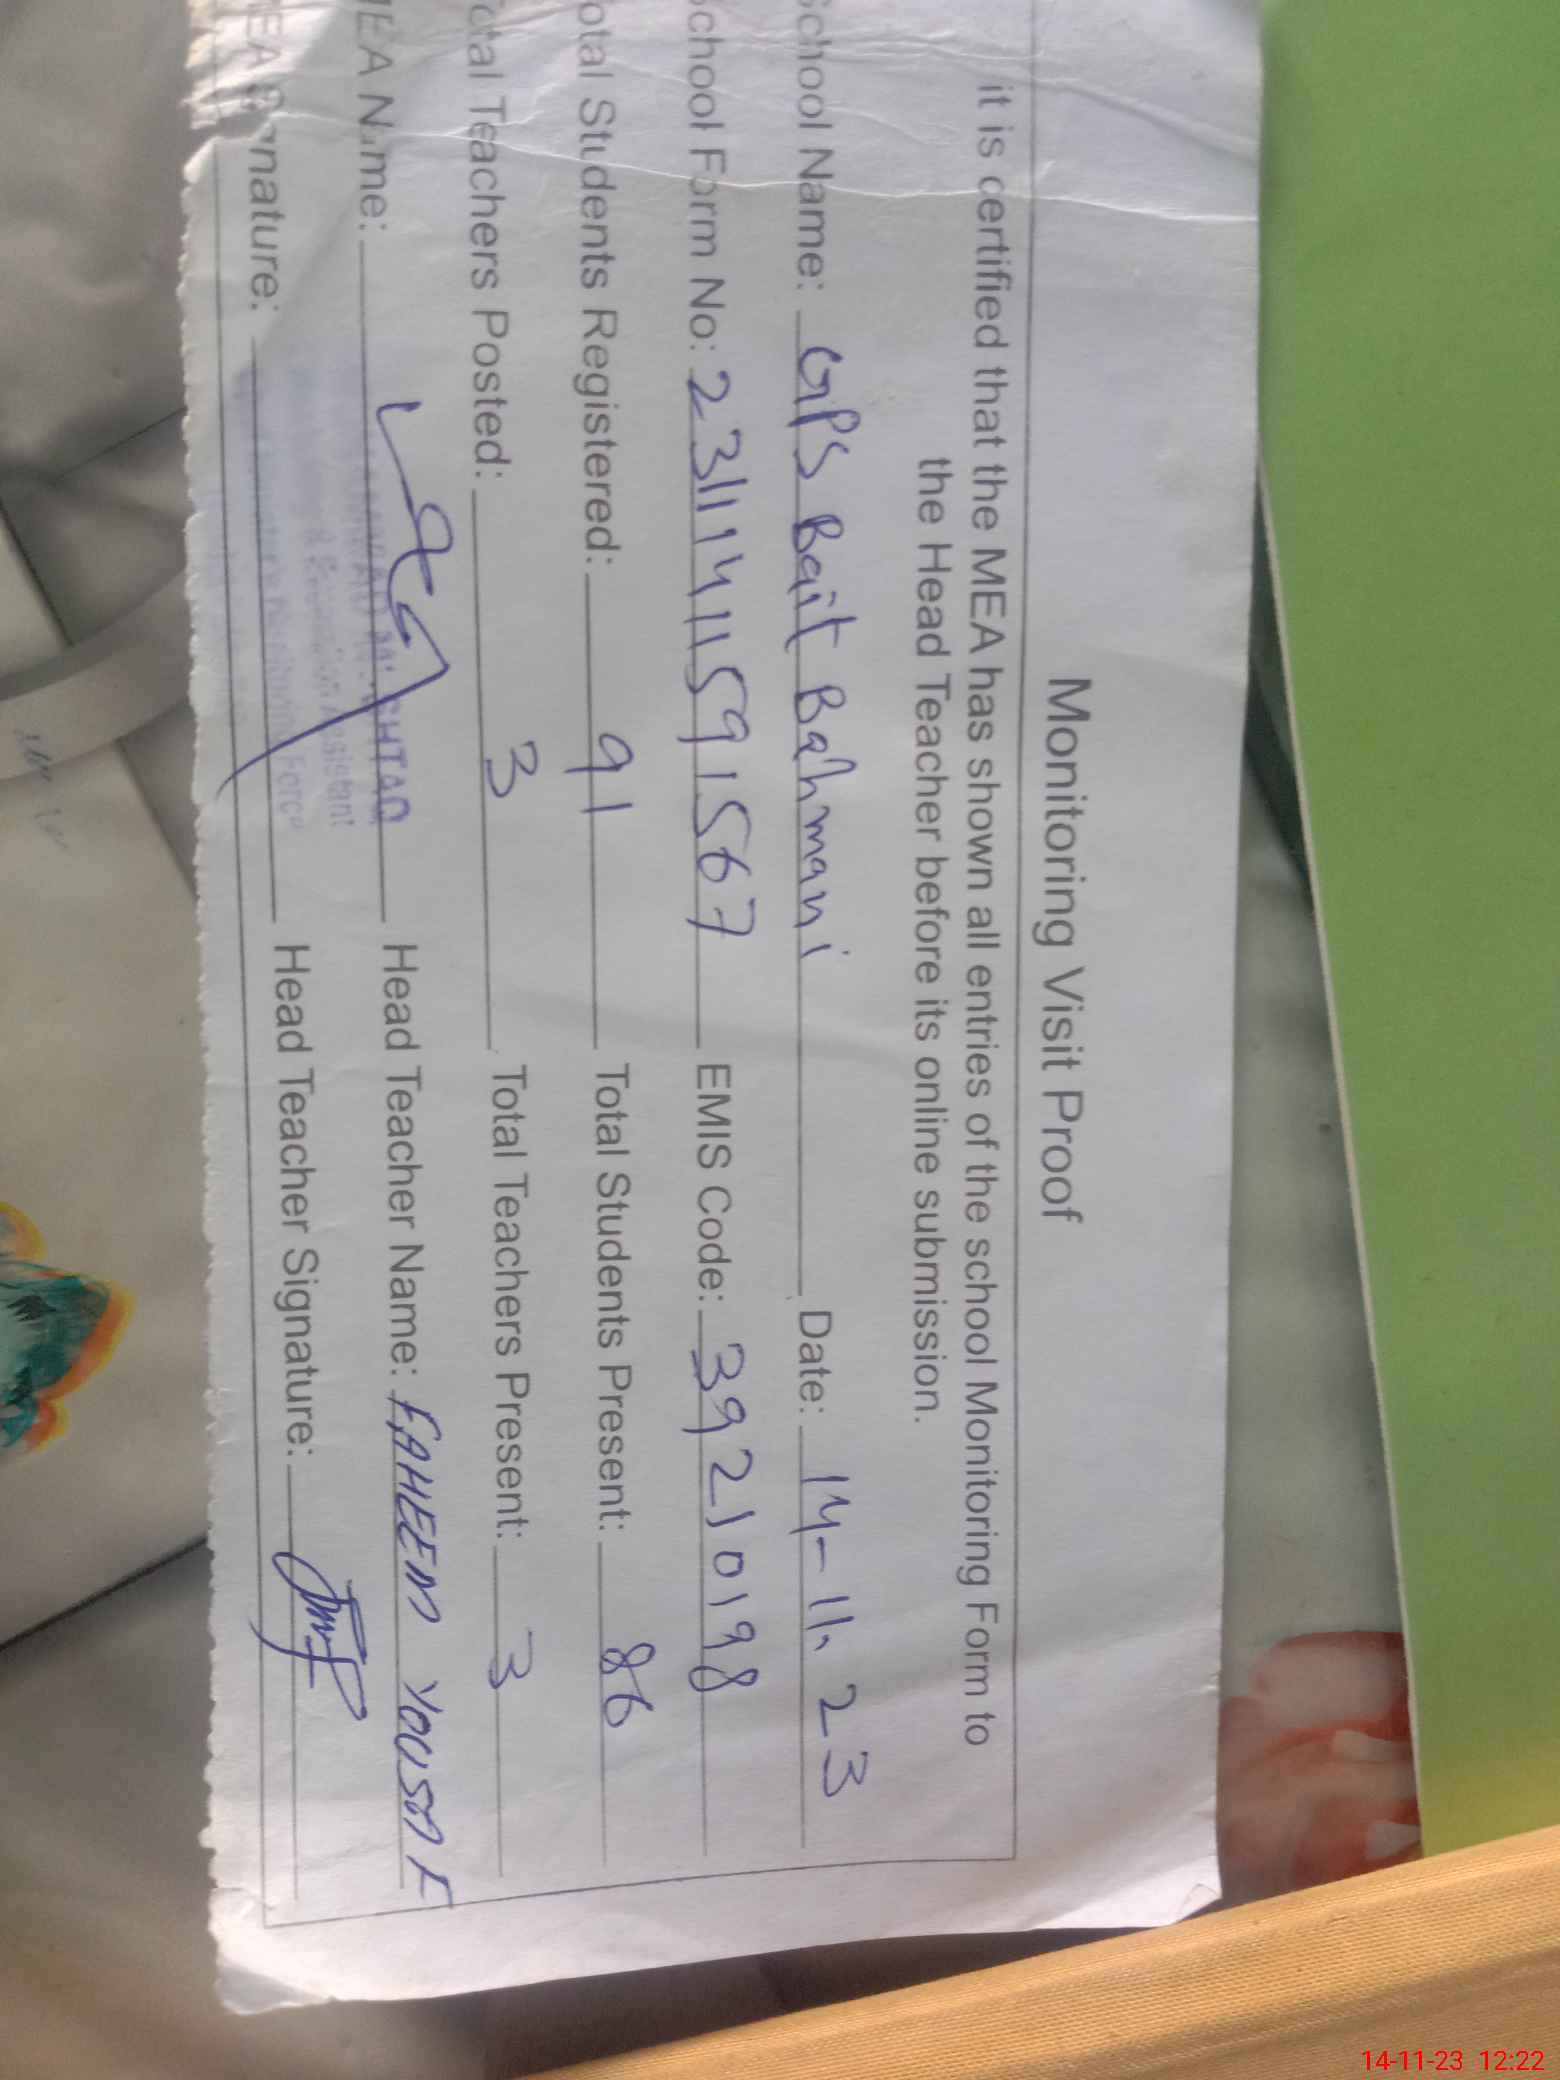 Monitoring Visit Proof
it is certified that the MEA has shown all entries of the school Monitoring Form to
the Head Teacher before its online submission.
School Name: GPS Bait Bahmani Date: 14-11-23
School Form No: 23111411591567 EMIS Code: 39210198
Total Students Registered: 91 Total Students Present: 86
Total Teachers Posted: 3 Total Teachers Present: 3
MEA Name: Head Teacher Name: FAHEEM YOUSAF
MEA Signature: Head Teacher Signature:
14-11-23 12:22